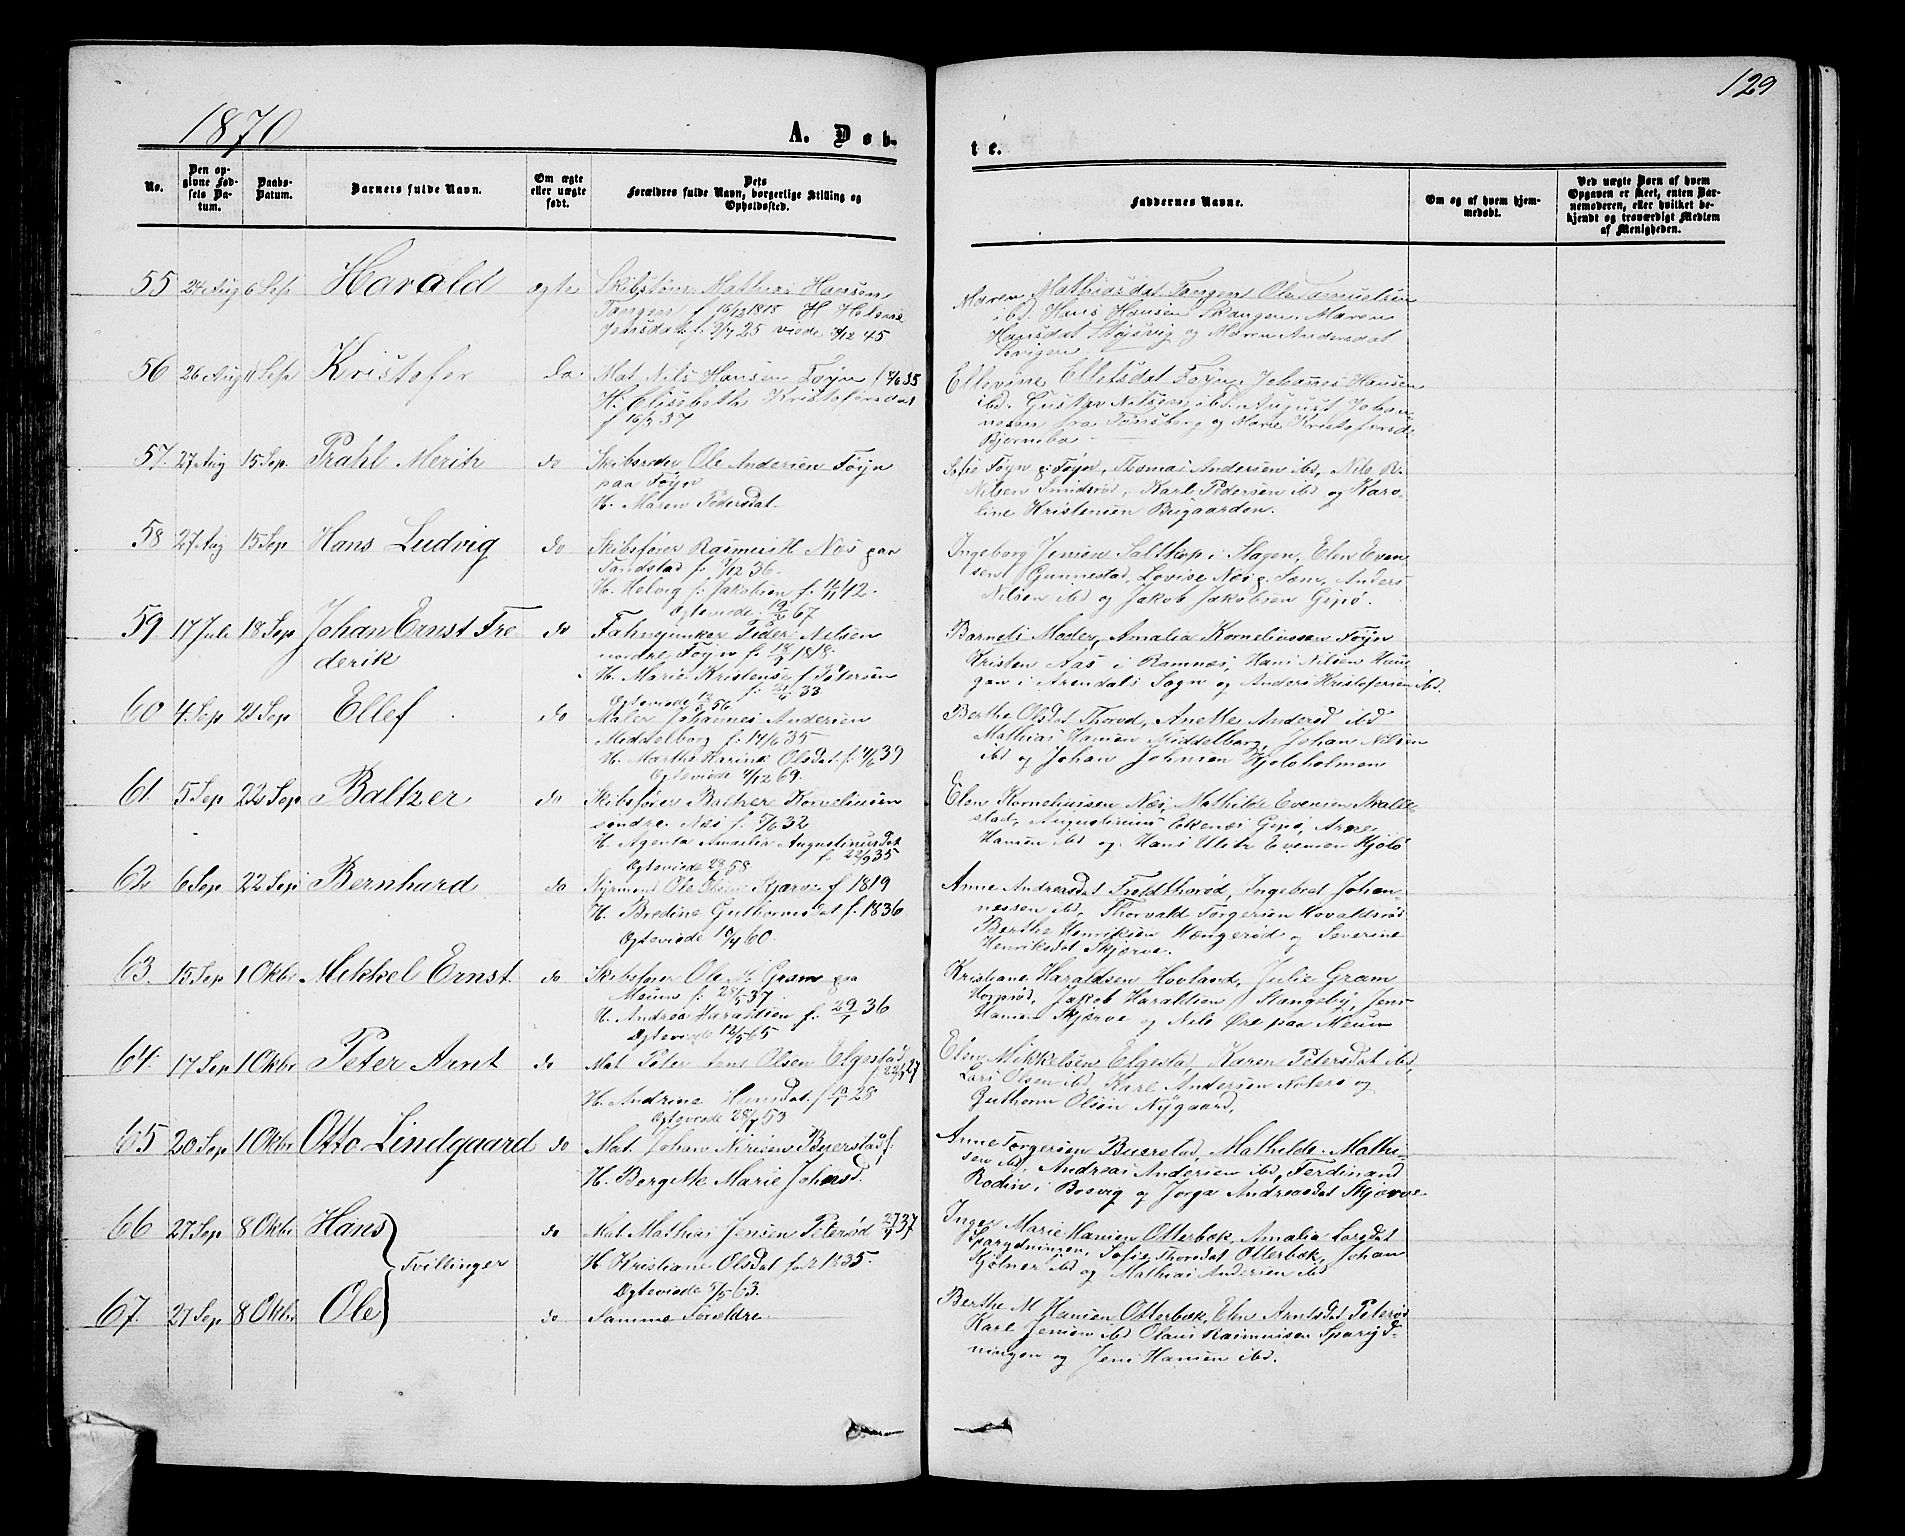 1870
A. Døb-
te.
129
No.
Den op-
givne Fød-
sels Da-
tum.
Daabs-
Datum.
Barnets fulde Navn.
Om ægte
eller uægte
født.
Dets
Forældres fulde Navn, borgerlige Stilling og
Opholdssted.
Faddernes Navne.
Om og af hvem hjem-
medøbt.
Ved uægte Børn af hvem
Opgaven er skeet, enten Bar-
nemoderen, eller hvilket be-
kjendt og troværdigt Medlem
af Menigheden.
55 24 Aug 6 Sep Harald ægte
Mathias Hansen
Tangen f 16/12 1818 H Helene
Jensdat. f. 2/7 25 viede 45
Maren Mathiasdat Tangen Ole Samuelsen
ibd. Hans Hansen Maren
Hansdat og Maren Andersdat
56 26 Aug 11 Sep Kristofer do
Mat Nils Hansen Føyn f 35
H. Elisabeth Kristofersdat
f 16/2 37
Ellevine Ellefsdat Føyn, Johannes Hansen
ibd. Gustav Nilsen ibd. August Johan-
nesen fra Tønsberg og Marie Kristofersd.
Bjørnebo
57. 27 Aug 15 Sep. Prahl Meritz do
Skibsreder Ole Andersen Føyn
paa Føyn
H. Maren Pedersdat
Sofie Føyn p. Føyn, Thomas Andersen ibd, Nils R.
Nilsen Smidsrød, Karl Pedersen ibd og Karo-
line Kristensen Bugaarden.
58 27 Aug 15 Sep Hans Ludvig do
Skibsfører Rasmus H Næs paa
Sandstad f: 1/12 36.
H. Helvig f. Jakobsen f. 12/11 42.
Ægteviede 67
Ingeborg Jensen Saltkop i Slagen, Elen Even-
sen Gunnestad, Lovise Næs p. Sem, Anders
Nilsen ibd og Jakob Jakobsen Gipø.
59 17 Juli 18 Sep Johan Ernst Fre
derik do
Fahnejunker Peder Nilsen
nordre Føyn f. 18/7 1818
H. Marie Kristense f Petersen
f. 33
Ægteviede 56
Barnets Moder, Amalia Kornelinssen Føyn
Kristen Aas i Ramnes, Hans Nilsen Hau-
gan i Arendals Sogn og Anders Kristofersen ibd.
60 4 Sep 21 Sep Ellef do
Maler Johannes Andersen
Middelborg f. 14/6 35
H. Marthe Karine Olsdat f. 4/6 39
Ægteviede 4/12 69.
Berthe Olsdat Thorød, Anette Andersd ibd
Mathias Hansen Middelborg, Johan Nilsen
ibd og Johan Johnsen Kjøløholmen
61. 5 Sep 22 Sep Baltzer do
Skibsfører Baltzer Kornelinsen
søndre Næs f. 5/6 32
H. Agenta Amalia Augustinusdat
f. 22/9 35
Ægteviede 28/ 58
Elen Kornelinssen Næs, Mathilde Evensen
stad, Augustinus Ekenæs Gipø, Arne
Hansen ibd og Hans Ulrik Evensen Kjøløø
62 6 Sep 22 Sep Bernhard do
Styrmand Ole Olsen Skjærve f 1819
H. Bredine Guthormsdat f. 1836
Ægteviede 10/4 60.
Anne Andersdat Fredthorød, Ingebret Johan-
nessen ibd, Thorvald Torgersen Hovaldsrød
Berthe Henriksen Hængerød og Severine
Henriksdat Skjærve.
63. 15 Sep 1 Oktbr Mekkel Ernst. do
Skibsfører Ole M. Gram paa
Meum f. 28/5 37.
H. Andrea Haraldsen f. 29/1 36
Ægteviede 12/5 65
Kristiane Haraldsen Hovland, Julie Gram
Jakob Haraldsen Stangeby, Jens
Hansen Skjærve og Nils Øre paa Meum
64. 17 Sep 1 Oktbr Peter Arnt do
Mat Peter Olsen Elgestad
f. 27
H. Andrine Hansdat f. 28
Ægteviede 28/7 53
Elen Mikkelsen Elgestad, Karen Petersdat ibd
Lars Olsen ibd, Karl Andersen Noterø og
Guthorm Olsen Nygaard,
65 20 Sep 1 Oktbr Otto Lindgaard do
Mat. Johan Nirisen Buerstad f.
H. Bergitte Marie Johnsd.
Anne Torgersen Buerstad, Mathilde Mathi-
sen ibd, Andreas Andersen ibd, Ferdinand
Rodin i Bosvig og Jørga Andreasdat Skjærve
66 27 Sep 8 Oktbr Hans
Tvillinger do
Mat. Mathias Jensen Petersød 27/1 37
H. Kristiane Olsdat født 1835.
Ægteviede 5/5 63.
Inger Marie Hansen Otterbæk, Amalia Larsdat
Sparydningen, Sofie Thoresdat Otterbæk, Johan
Kjølner ibd og Mathias Andersen ibd
67. 27 Sep 8 Oktbr Ole do
Samme Forældre
Berthe M Hansen Otterbæk, Elen Arntsdat Petersø
Karl Jensen ibd Olaus Rasmussen Sparyd-
ningen og Jens Hansen ibd.